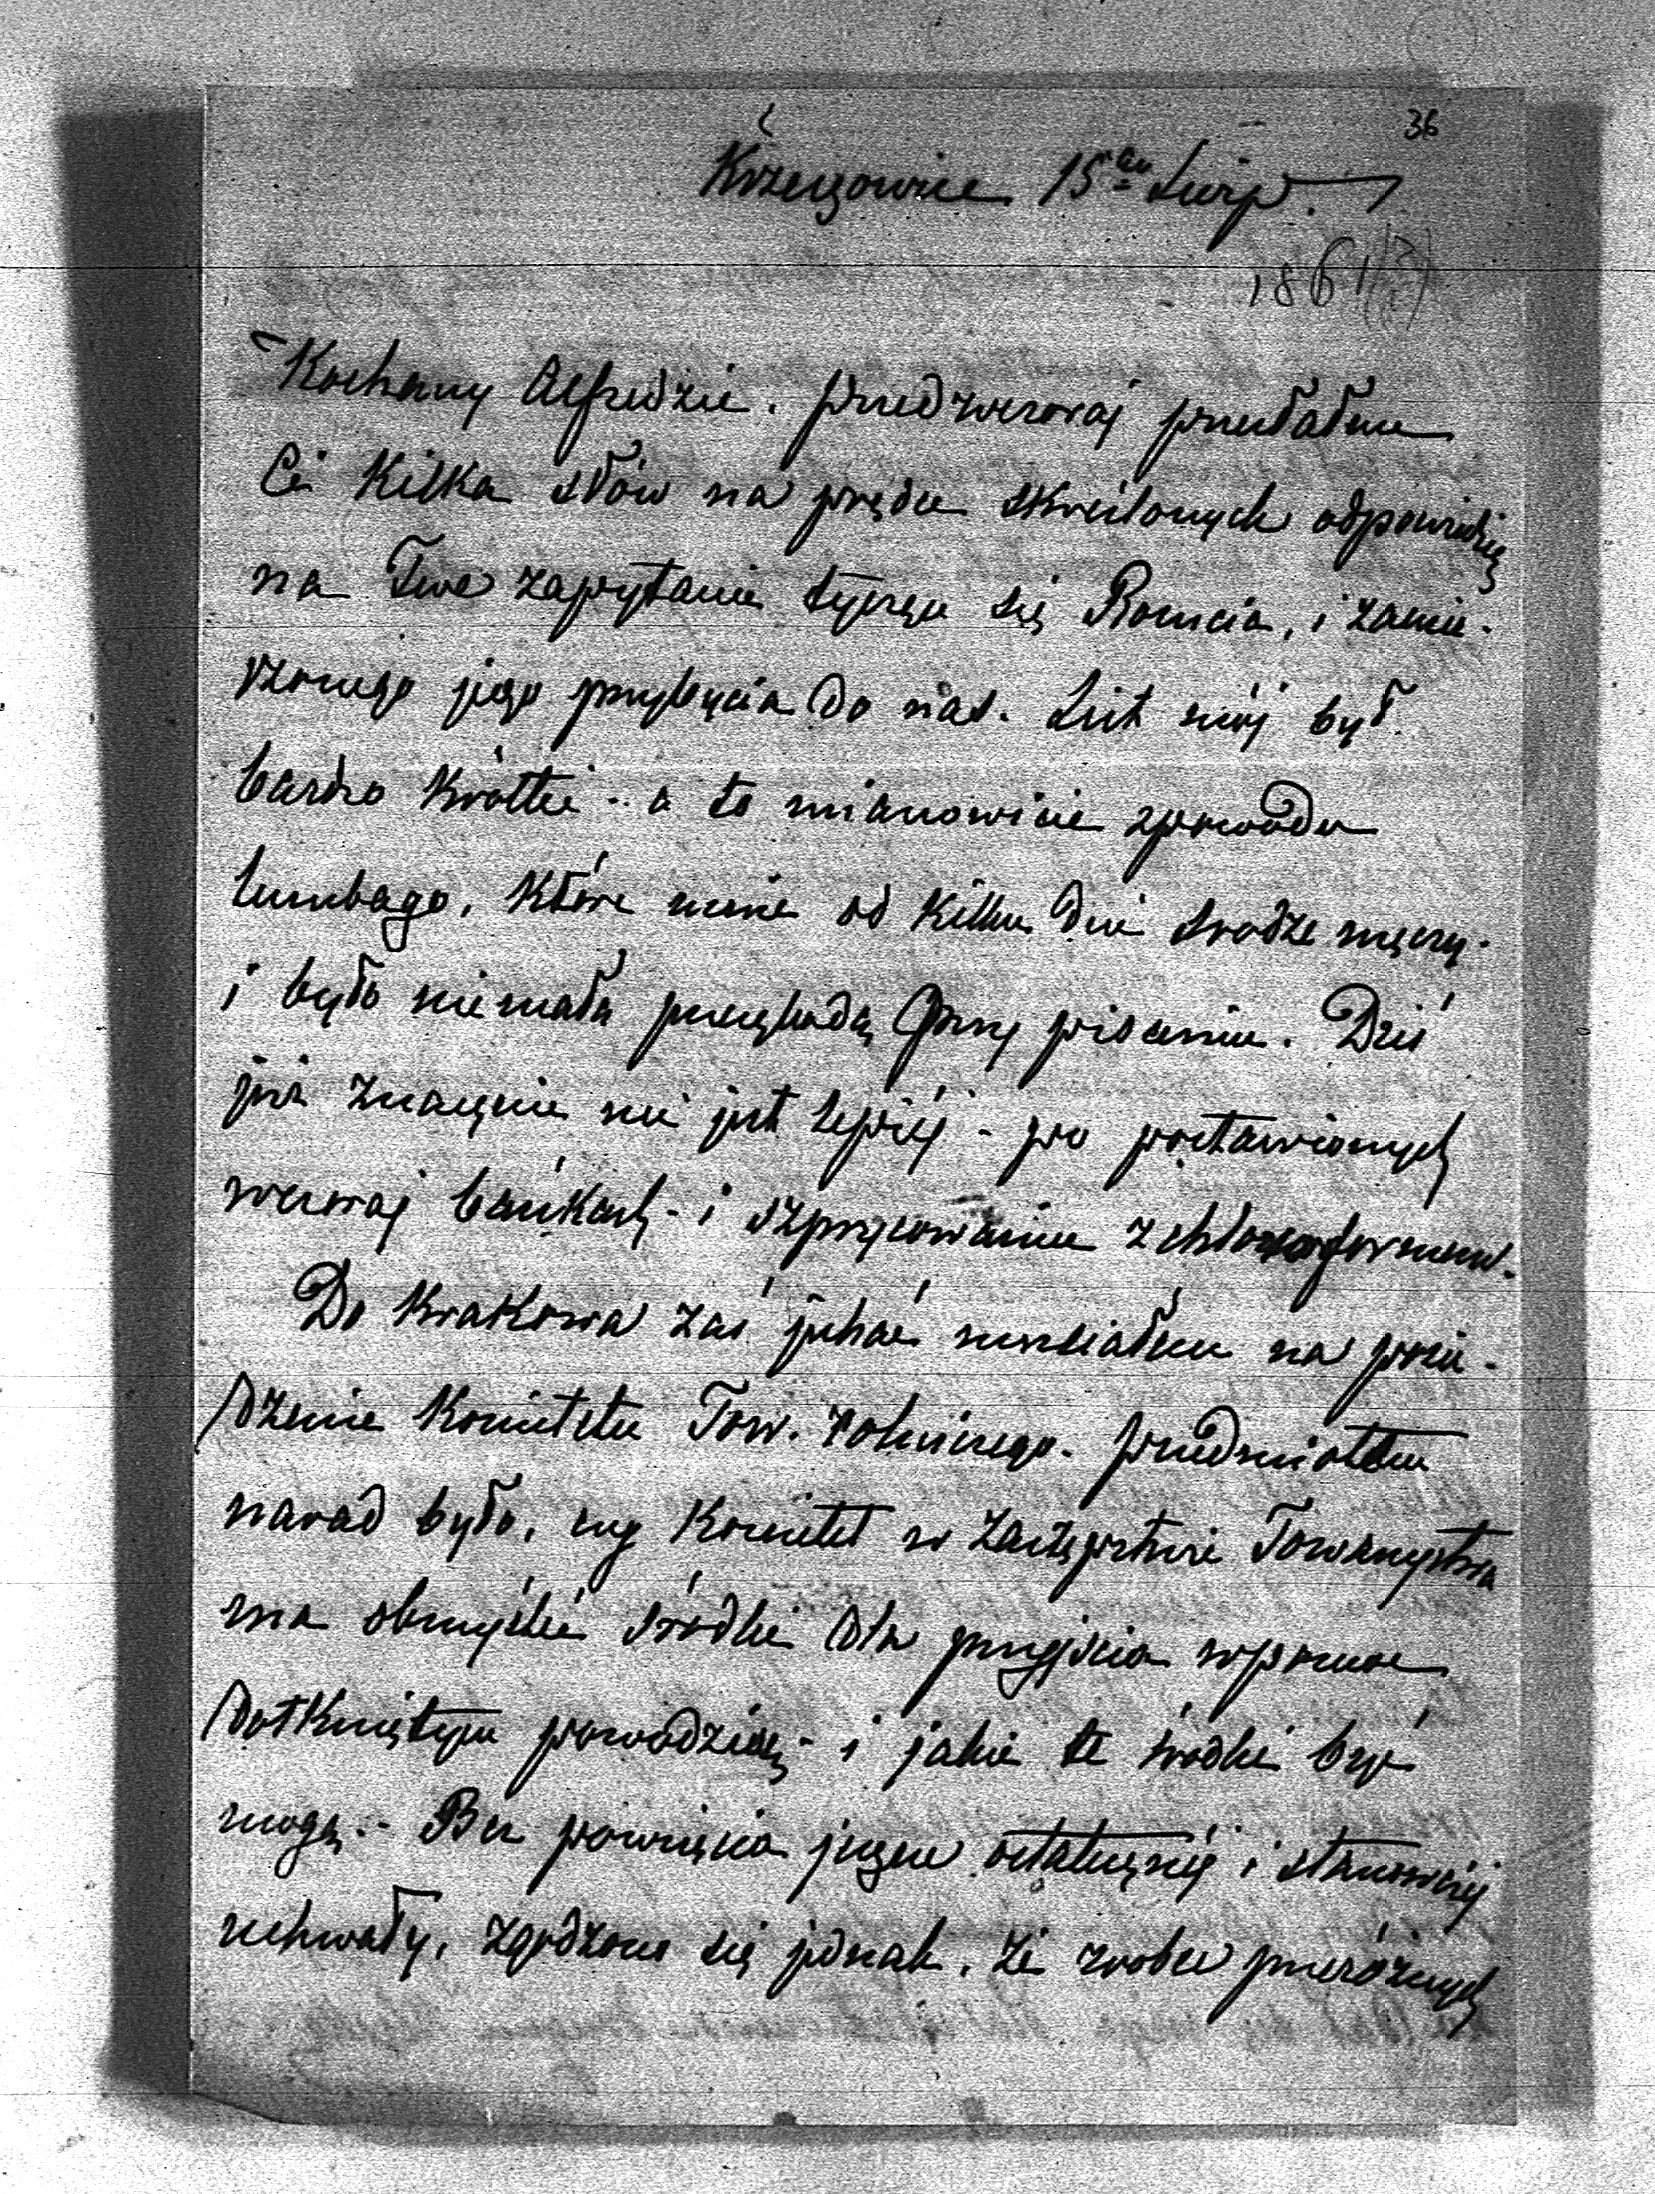 36
Krzeszowice 15go Sierp.
1861(?)
Kochany Alfredzie. Przedwczoraj przesłałem
Ci kilka słów na prędce skreślonych odpowiedzią
na Twe zapytanie tyczące się Romcia, i zamie-
rzonego jego przybycia do nas. List mój był
bardzo krótki - a to mianowicie zpowodu
lumbago, które mnie od kilku dni srodze męczy -
i było niemałą przeszkodą przy pisaniu. Dziś
już znacznie mi jest lepiéj - po postawionych
wczoraj bańkach - i szprycowaniu z chloroformem.
Do Krakowa zaś jechać musiałem na posie-
dzenie Komitetu Tow. rolniczego. Przedmiotem
narad było, czy Komitet w zastępstwie Towarzystwa
ma obmyśleć środki dla przyjścia wpomoc
dotkniętym powodzią - i jakie te środki być
mogą. - Bez powzięcia jeszcze ostatecznéj i stanowczéj
uchwały, zgodzono się jednak, że wobec przeróżnych